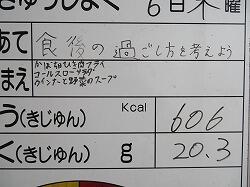 きゅうしょく 6日木曜
あて 食後の過ごし方を考えよう
まえ かぼちゃひき肉フライ
コールスローサラダ
ウインナーと野菜のスープ
う(きじゅん) Kcal 606
く(きじゅん) g 20.3